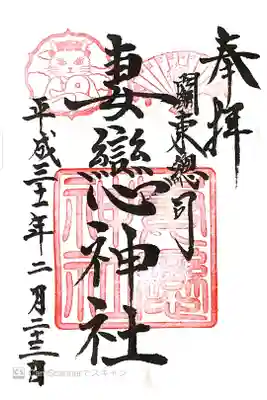 奉拝
關東總司
妻戀神社
平成三十一年二月二十三日
妻戀
神社
CS CamScannerでスキャン